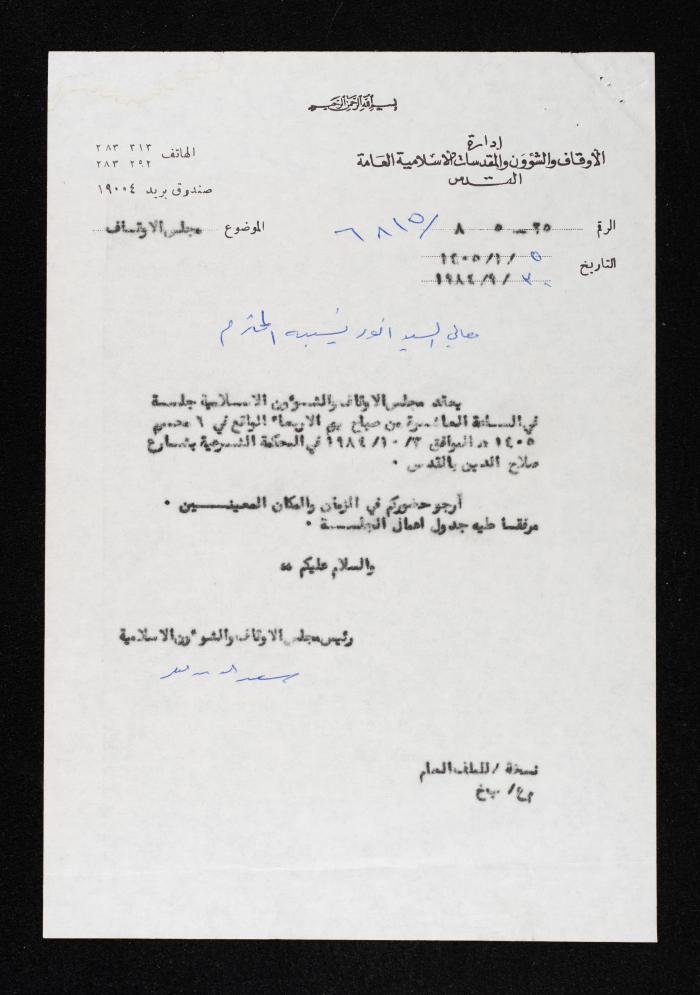 بسم الله الرحمن الرحيم
إدارة
الأوقاف والشؤون والمقدسات الاسلامية العامة
القدس
الهاتف ٢٨٣ ٣١٣
٢٨٣ ٢٩٢
صندوق بريد ١٩٠٠٤
الرقم ٢٥ - ٥ ٨ /٦٨١٥
الموضوع مجلس الاوقاف
التاريخ ٥ /١/١٤٠٥
٣٠ /٩/١٩٨٤
معالي السيد انور نسيبه المحترم
يعقد مجلس الاوقاف والشؤون الاسلامية جلسة
في الساعة العاشرة من صباح يوم الاربعاء الواقع في ٦ محرم
١٤٠٥ هـ الموافق ٣/ ١٠/ ١٩٨٤ في المحكمة الشرعية بشارع
صلاح الدين بالقدس ٠
أرجو حضوركم في الزمان والمكان المعينـــــين ٠
مرفقـا طيه جدول اعمال الجلســـة ٠
والسلام عليكم ،،
رئيس مجلس الاوقاف والشؤون الاسلامية
نسخة / للملف العام